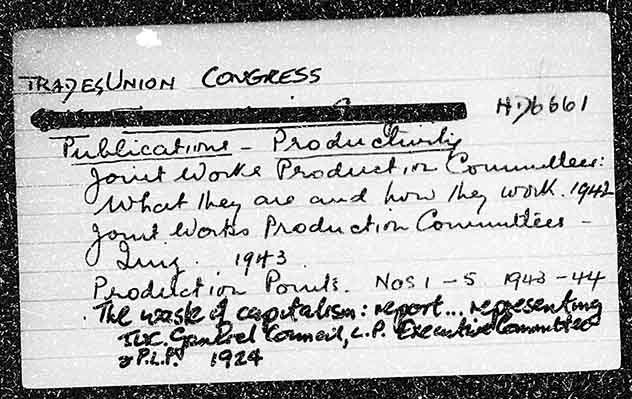 TRADES UNION CONGRESS
HD6661
Publications - Productivity
Joint Works Production Committees:
What they are and how they work. 1942
Joint Works Production Committees -
1943
Production Points. Nos 1 - 5 1943 - 44
The waste of capitalism: report... representing
TUC. General Council, L.P. Executive Committee
& P.L.P. 1924